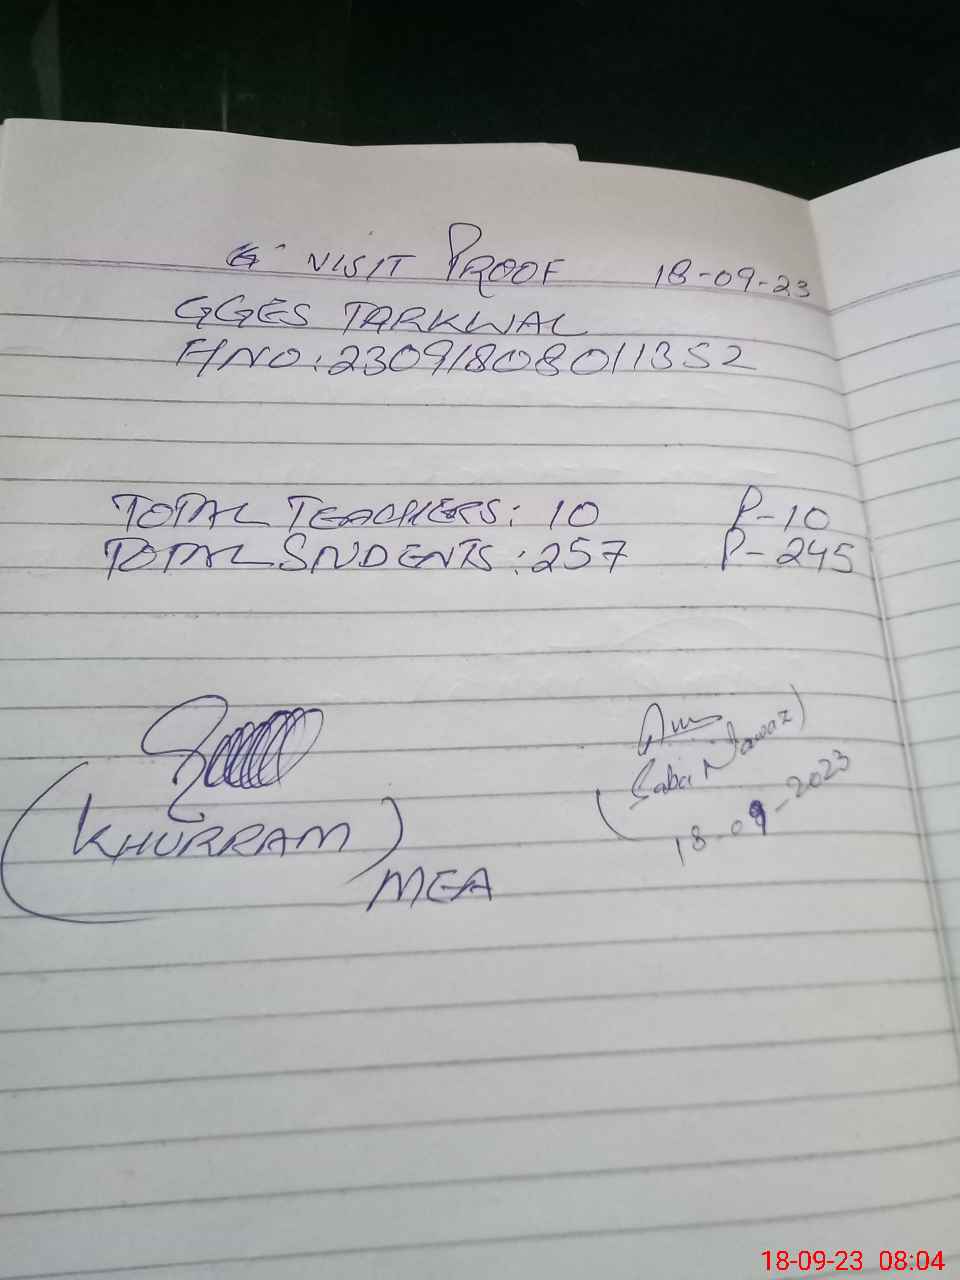 VISIT PROOF 18-09-23
GGES TARKWAL
HNO: 23091808011352
TOTAL TEACHERS: 10 P-10
TOTAL STUDENTS: 257 P-245
(KHURRAM)
MEA
(Saba Nawaz)
18-09-2023
18-09-23 08:04